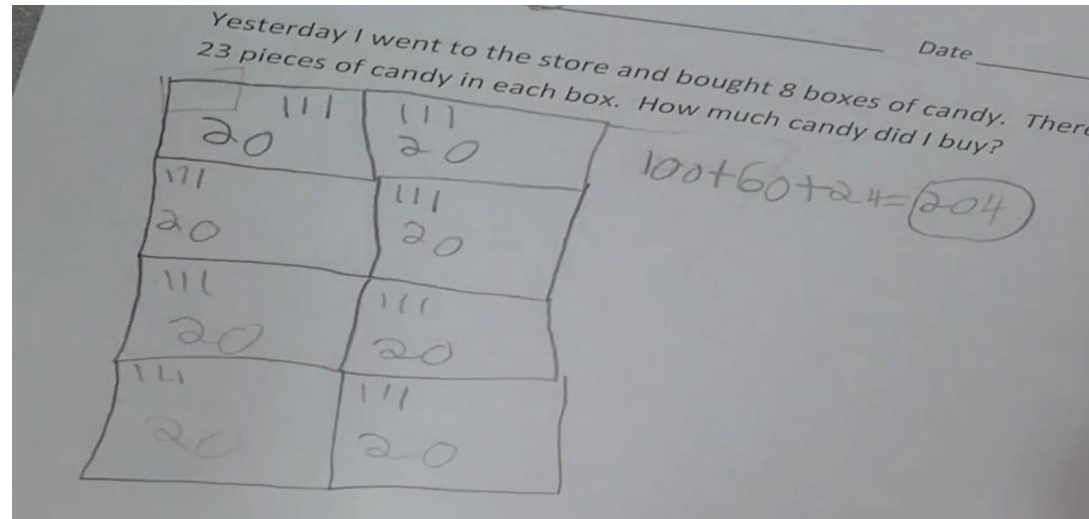 Date
Yesterday I went to the store and bought 8 boxes of candy. There
23 pieces of candy in each box. How much candy did I buy?
100+60+24=204
||| |||
20 20
||| |||
20 20
||| |||
20 20
||| |||
20 20